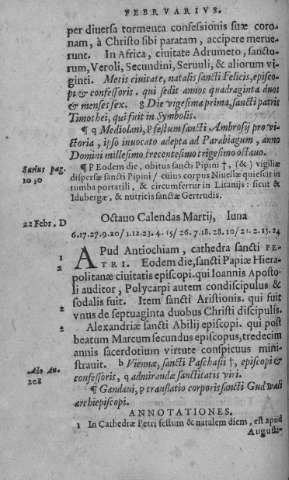 FEBRVARIVS.
per diuersa tormenta confessionis suæ coro-
nam, à Christo sibi paratam, accipere merue-
runt. In Africa, ciuitate Adrumeto, sanctu-
rum, Veroli, Secundini, Seruuli, & aliorum vi-
ginti. Metis ciuitate, natalis sancti Felicis, episco-
pi & confessoris. qui sedit annos quadraginta duos
& menses sex. g Die vigesima prima, sancti patris
Timothei, qui fuit in Symbolis.
¶ q Mediolani, p festum sancti Ambrosij pro vi-
ctoria, ipso inuocato adepta ad Parabiagum, anno
Domini millesimo trecentesimo trigesimo octauo.
Surius pag.
1030
¶ P Eodem die, obitus sancti Pipini †, (&) vigiliæ
dispersæ sancti Pipini / cuius corpus Niuellæ quiescit in
tumba portatili, & circumfertur in Litanijs: sicut &
Idubergæ, & nutricis sanctæ Gertrudis.
22 Febr. D
Octauo Calendas Martij, luna
6.17.27.9.20/1.12.23.4.15/26.7.18.28.10/21.2.13.24
APud Antiochiam, cathedra sancti PE-
1
TRI. Eodem die, sancti Papiæ Hiera-
2
politanæ ciuitatis episcopi. qui Ioannis Aposto-
li auditor, Polycarpi autem condiscipulus &
sodalis fuit. Item sancti Aristionis. qui fuit
vnus de septuaginta duobus Christi discipulis.
Alexandriæ sancti Abilij episcopi. qui post
beatum Marcum secundus episcopus, tredecim
annis sacerdotium virtute conspicuus mini-
strauit. b Viennæ, sancti Paschasij †, episcopi &
Ado An.
confessoris, q admirandæ sanctitatis viri.
¶ Gandaui, p translatio corporis sancti Gudwali
archiepiscopi.
ANNOTATIONES.
1 In Cathedra Petri festum & natalem diem, est apud
Augusti-